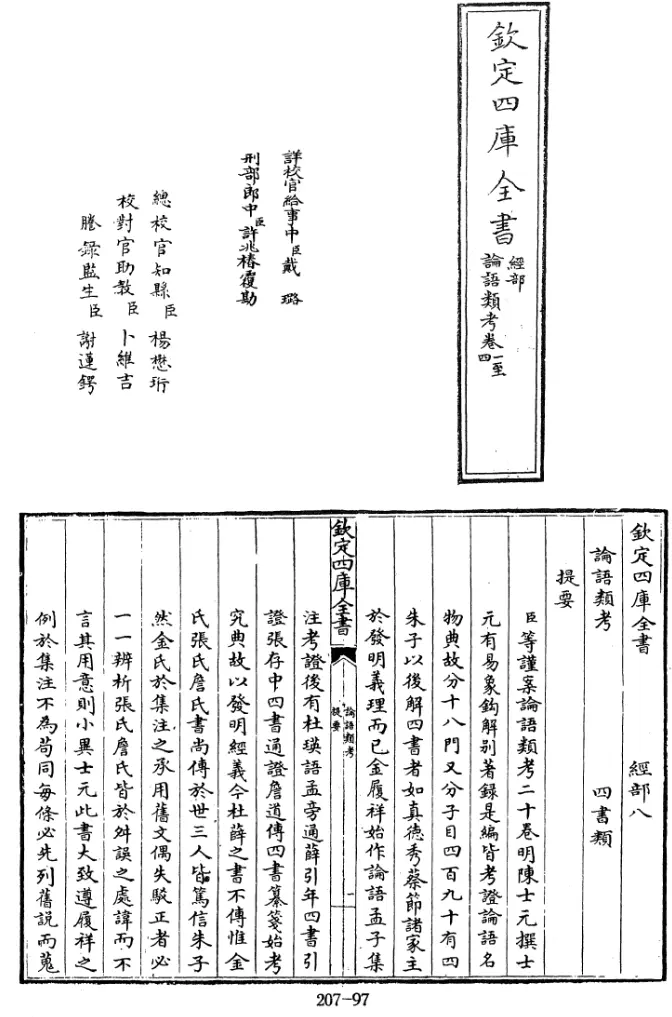 欽定四庫全書
經部
論語類考卷一至四
詳校官給事中臣戴璐
刑部郎中臣許兆椿覆勘
總校官知縣臣楊懋珩
校對官助教臣卜維吉
謄錄監生臣謝蓮鍔
欽定四庫全書 經部八
論語類考 四書類
提要
臣等謹案論語類考二十卷明陳士元撰士
元有易象鈎解别著錄是編皆考證論語名
物典故分十八門又分子目四百九十有四
朱子以後解四書者如真德秀蔡節諸家主
於發明義理而已金履祥始作論語孟子集
欽定四庫全書
論語類考
提要
一
注考證後有杜瑛語孟旁通薛引年四書引
證張存中四書通證詹道傳四書纂箋始考
究典故以發明經義今杜薛之書不傳惟金
氏張氏詹氏書尚傳於世三人皆篤信朱子
然金氏於集注之承用舊文偶失駁正者必
一一辨析張氏詹氏皆於舛誤之處諱而不
言其用意則小異士元此書大致遵履祥之
例於集注不為苟同每條必先列舊說而蒐
207-97